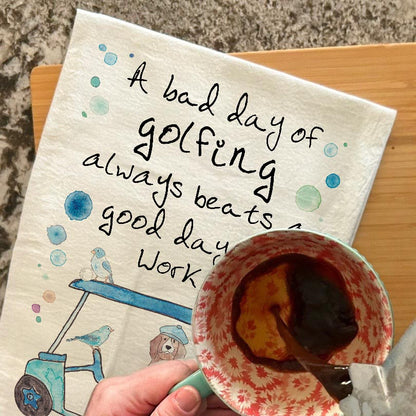 A bad day of
golfing
always beats a
good day
Work